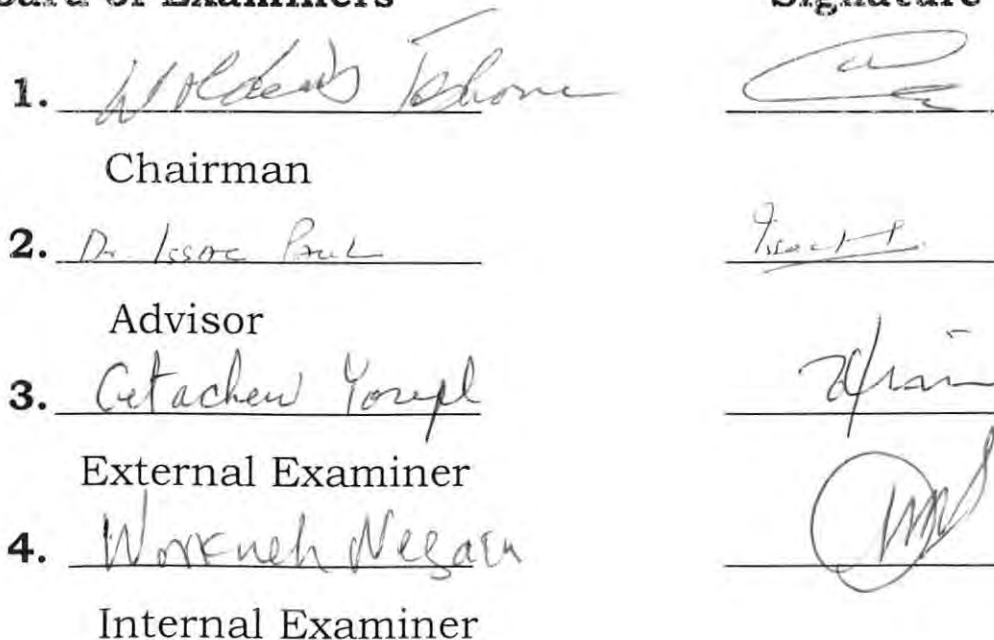 Board of Examiners Signature
1. Teshome
Chairman
2. Dr. Issac Paul
Advisor
3. Getachew Yoseph
External Examiner
4. Workneh Negatu
Internal Examiner